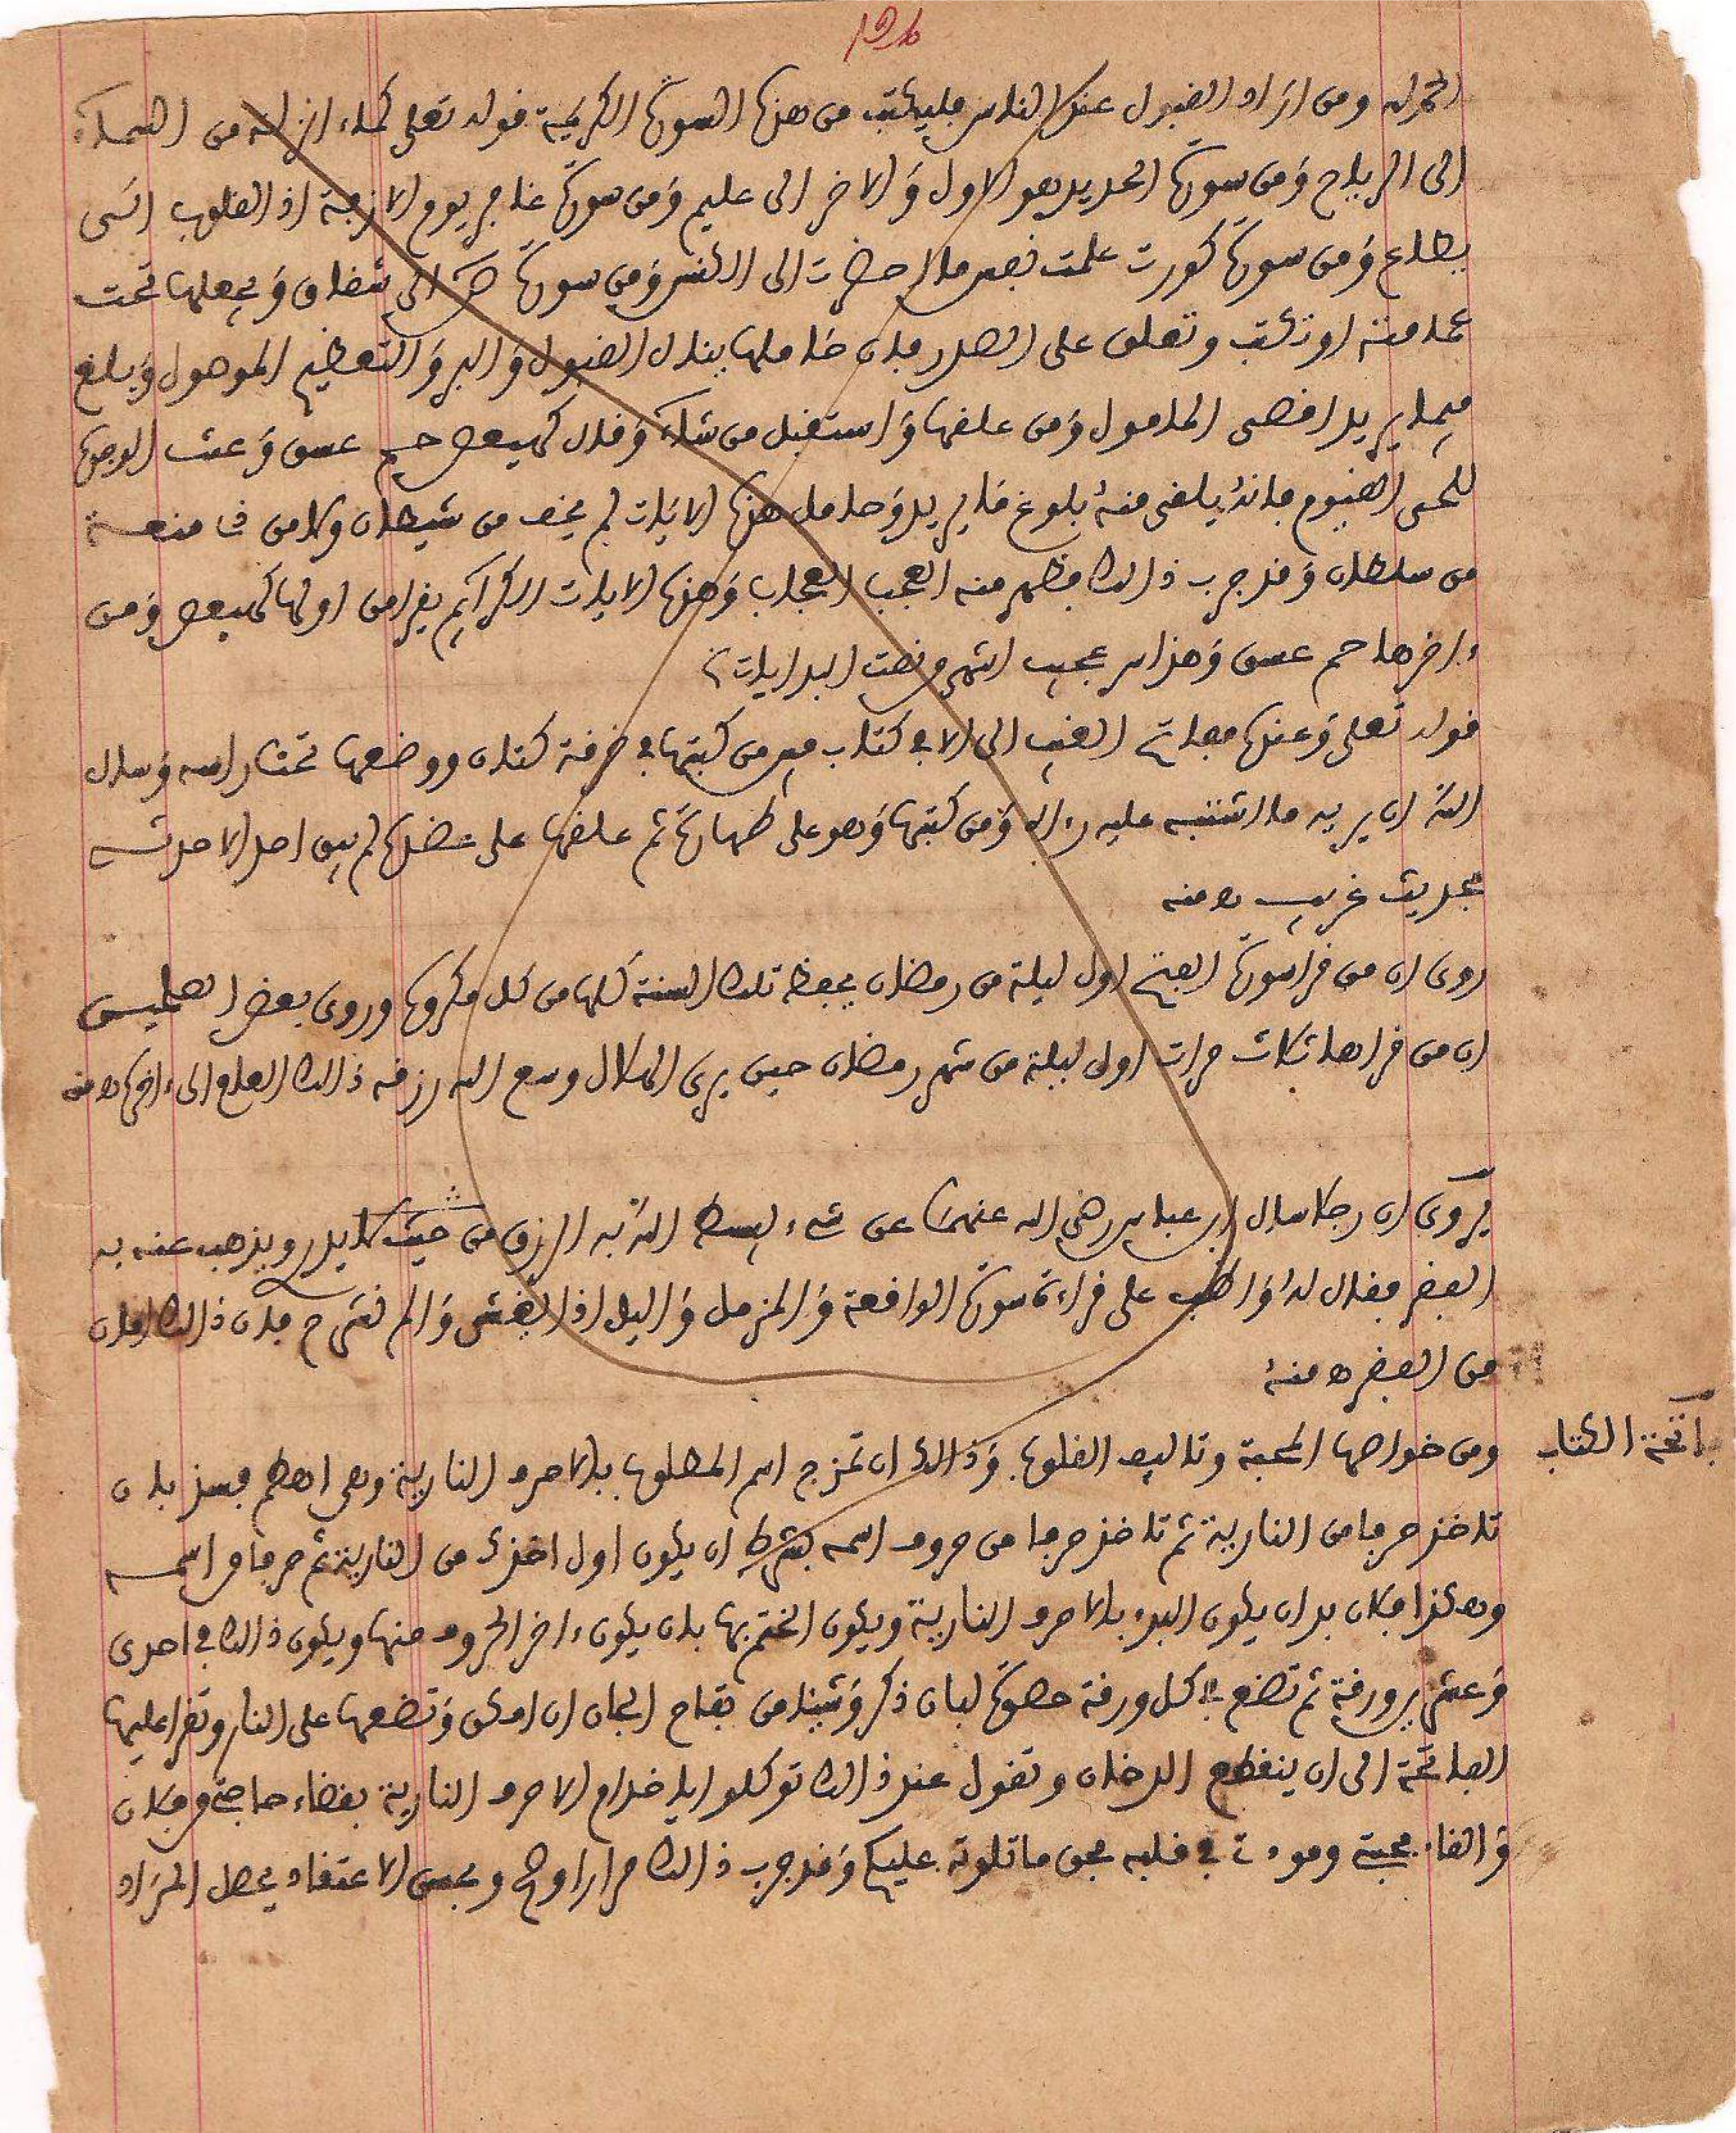 الحمد لله ومن اراد القبول عند الناس فليكتب من هذه السورة الكريمة قوله تعلى كماء انزلنه من السماء
الى الرياح ومن سورة الحديد هو الاول والاخر الى عليم ومن سورة غافر يوم الازفة اذ القلوب الى
يطاع ومن سورة كورت علمت نفس ما احضرت الى الكنس ومن سورة ص الى شقاق ويجعلها تحت
عمامته او تكتب وتعلق على الصدر فان حاملها ينال القبول والبر والتعظيم الموصول ويبلغ
فيما يريد اقصى المامول ومن علقها واستقبل من شاء وقال كهيعص حم عسق وعنت الوجوه
للحي القيوم فانه يلقى منه بلوغ ما يريد وحامل هذه الايات لم يخف من شيطان ولا من
من سلطان وقد جرب ذالك فظهر منه العجب العجاب وهذه الايات الكرايم يقرا من اولها كهيعص ومن
ءاخرها حم عسق وهذا سر عجيب انتهى
قوله تعلى وعنده مفاتح الغيب الى الا في كتاب مبين من كتبها في خرقة كتان ووضعها تحت راسه وسال
الله ان يريه ما اشتبه عليه راه ومن كتبها وهو على طهارة ثم علقها على عضده لم يبق احد الا حدثه
بحديث غريب ه منه
روى ان من قرا سورة الفتح اول ليلة من رمضان يحفظ تلك السنة كلها من كل مكروه وروى بعض الصلحين
ان من قراها ثلاث مرات اول ليلة من شهر رمضان حين يرى الهلال وسع الله رزقه ذالك العام الى ءاخره ه منه
يروى ان رجلا سال ابن عباس رضي الله عنهما عن شيء يبسط الله به الرزق من حيث لا يدر ويذهب عنه به
الفقر فقال له واظب على قراءة سورة الواقعة والمزمل واليل اذا يغشى والم نشرح فان ذالك امان
من الفقر ه منه
فاتحة الكتاب
ومن خواصها المحبة وتاليف القلوب وذالك ان تمزج اسم المطلوب بالاحرف النارية وهي اهطم فشذ بان
تاخذ حرفا من النارية ثم تاخذ حرفا من حروف اسمه بشرط ان يكون اول اخذك من النارية ثم حرفا من اسمه
وهكذا فلا بد ان يكون البدء بالاحرف النارية ويكون الختم بها بان يكون ءاخر الحروف منها ويكون ذالك في احدى
وعشرين ورقة ثم تضع في كل ورقة حصوة لبان ذكر وشيئا من تفاح الجان ان امكن وتضعها على النار وتقرا عليها
الفاتحة الى ان ينقطع الدخان وتقول عند ذالك توكلوا ايا خدام الاحرف النارية بقضاء حاجتي من فلان
والقاء محبتي ومودتي في قلبه بحق ما تلوته عليكم وقد جرب ذالك مرارا وصح وبحسن الاعتقاد يحصل المراد